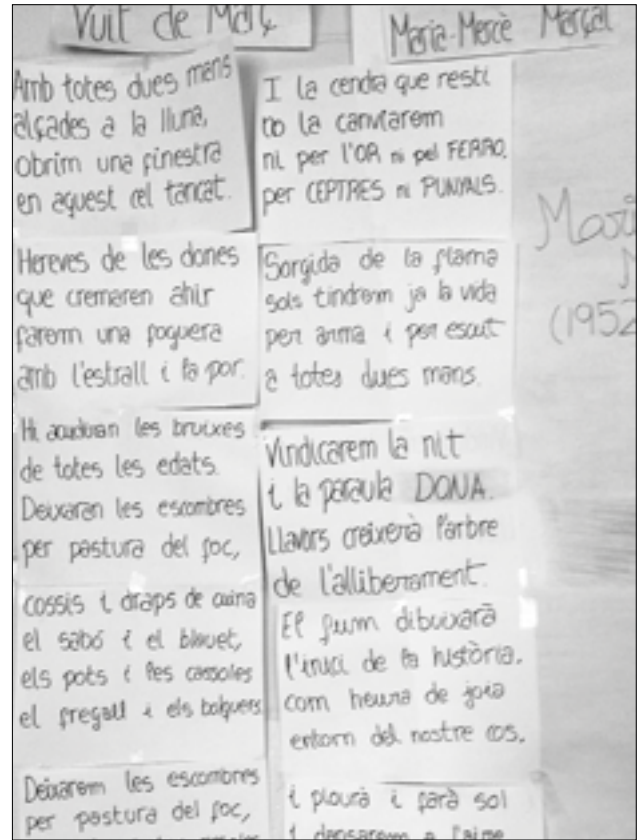 Vuit de Març
Amb totes dues mans
alçades a la lluna,
obrim una finestra
en aquest cel tancat.
Hereves de les dones
que cremaren ahir
farem una foguera
amb l'estrall i la por.
Hi acudiran les bruixes
de totes les edats.
Deixaran les escombres
per pastura del foc,
cossis i draps de cuina
el sabó i el blauet,
els pots i les cassoles
el fregall i els bolquers
Deixarem les escombres
per pastura del foc,
Maria-Mercè Marçal
I la cendra que resti
no la canviarem
ni per l'OR ni pel FERRO,
per CEPTRES ni PUNYALS.
Sorgida de la flama
sols tindrem ja la vida
per arma i per escut
a totes dues mans.
Vindicarem la nit
i la paraula DONA.
Llavors creixerà l'arbre
de l'alliberament.
El fum dibuixarà
l'inici de la història,
com heura de joia
entorn del nostre cos,
i plourà i farà sol
i dansarem a l'aire
Mari
M
(1952